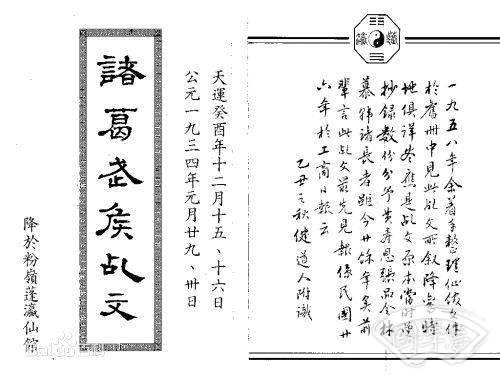 一九五八年余着手整理仙館文件
於舊冊中見此乩文所敘降鸞時
地俱詳盡應是乩文原本當時
抄錄數份分予黃壽恩張品全林
慕韓諸長者距今廿餘年矣前
輩言此乩文最先見報係民國廿
六年於工商日報云
乙丑之秋健道人附識
天運癸酉年十二月十五、十六日
公元一九三四年元月廿九、卅日
諸葛武侯乩文
降於粉嶺蓬瀛仙館
Baidu百科